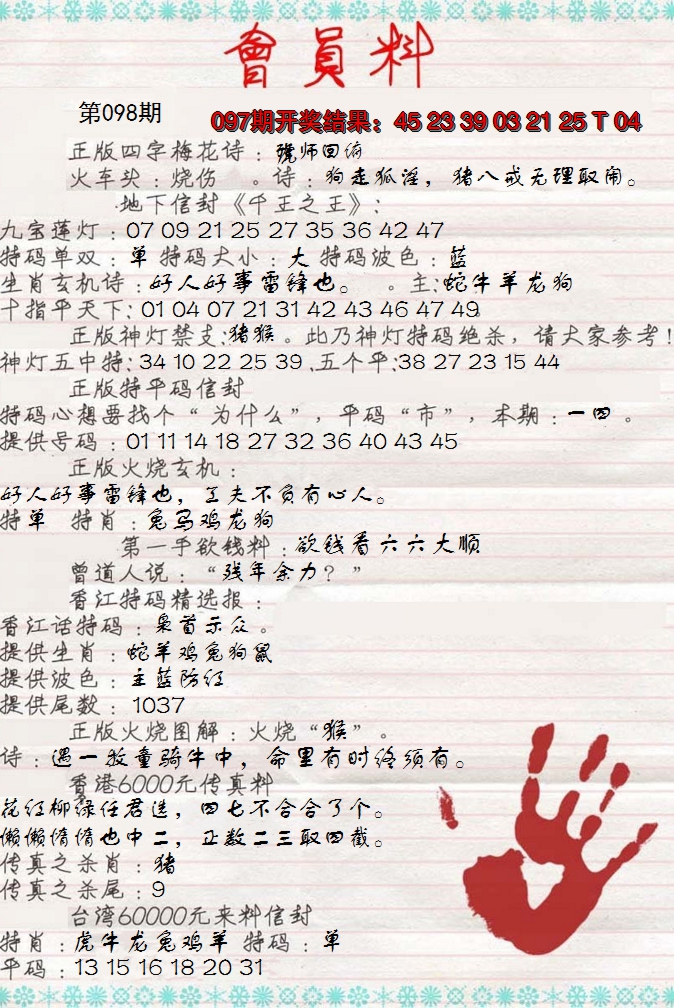 會員料
第098期
097期开奖结果：45 23 39 03 21 25 T 04
正版四字梅花诗：班师回俯
火车头：烧伤 。诗：狗走狐淫，猪八戒无理取闹。
地下信封《千王之王》：
九宝莲灯：07 09 21 25 27 35 36 42 47
特码单双：单 特码大小：大 特码波色：蓝
生肖玄机诗：好人好事雷锋也。 。主：蛇牛羊龙狗
十指平天下：01 04 07 21 31 42 43 46 47 49
正版神灯禁支：猪猴。此乃神灯特码绝杀，请大家参考！
神灯五中特：34 10 22 25 39 .五个平：38 27 23 15 44
正版特平码信封
特码心想要找个“为什么”，平码“市”，本期：一四。
提供号码：01 11 14 18 27 32 36 40 43 45
正版火烧玄机：
好人好事雷锋也，工夫不负有心人。
特单 特肖：兔马鸡龙狗
第一手欲钱料：欲钱看六六大顺
曾道人说：“残年余力？”
香江特码精选报：
香江话特码：枭首示众。
提供生肖：蛇羊鸡兔狗鼠
提供波色：主蓝防红
提供尾数：1037
正版火烧图解：火烧“猴”。
诗：遇一牧童骑牛中，命里有时终须有。
香港6000元传真料
花红柳绿任君选，四七不合合了个。
懒懒惰惰也中二，正数二三取四截。
传真之杀肖：猪
传真之杀尾：9
台湾60000元来料信封
特肖：虎牛龙兔鸡羊 特码：单
平码：13 15 16 18 20 31